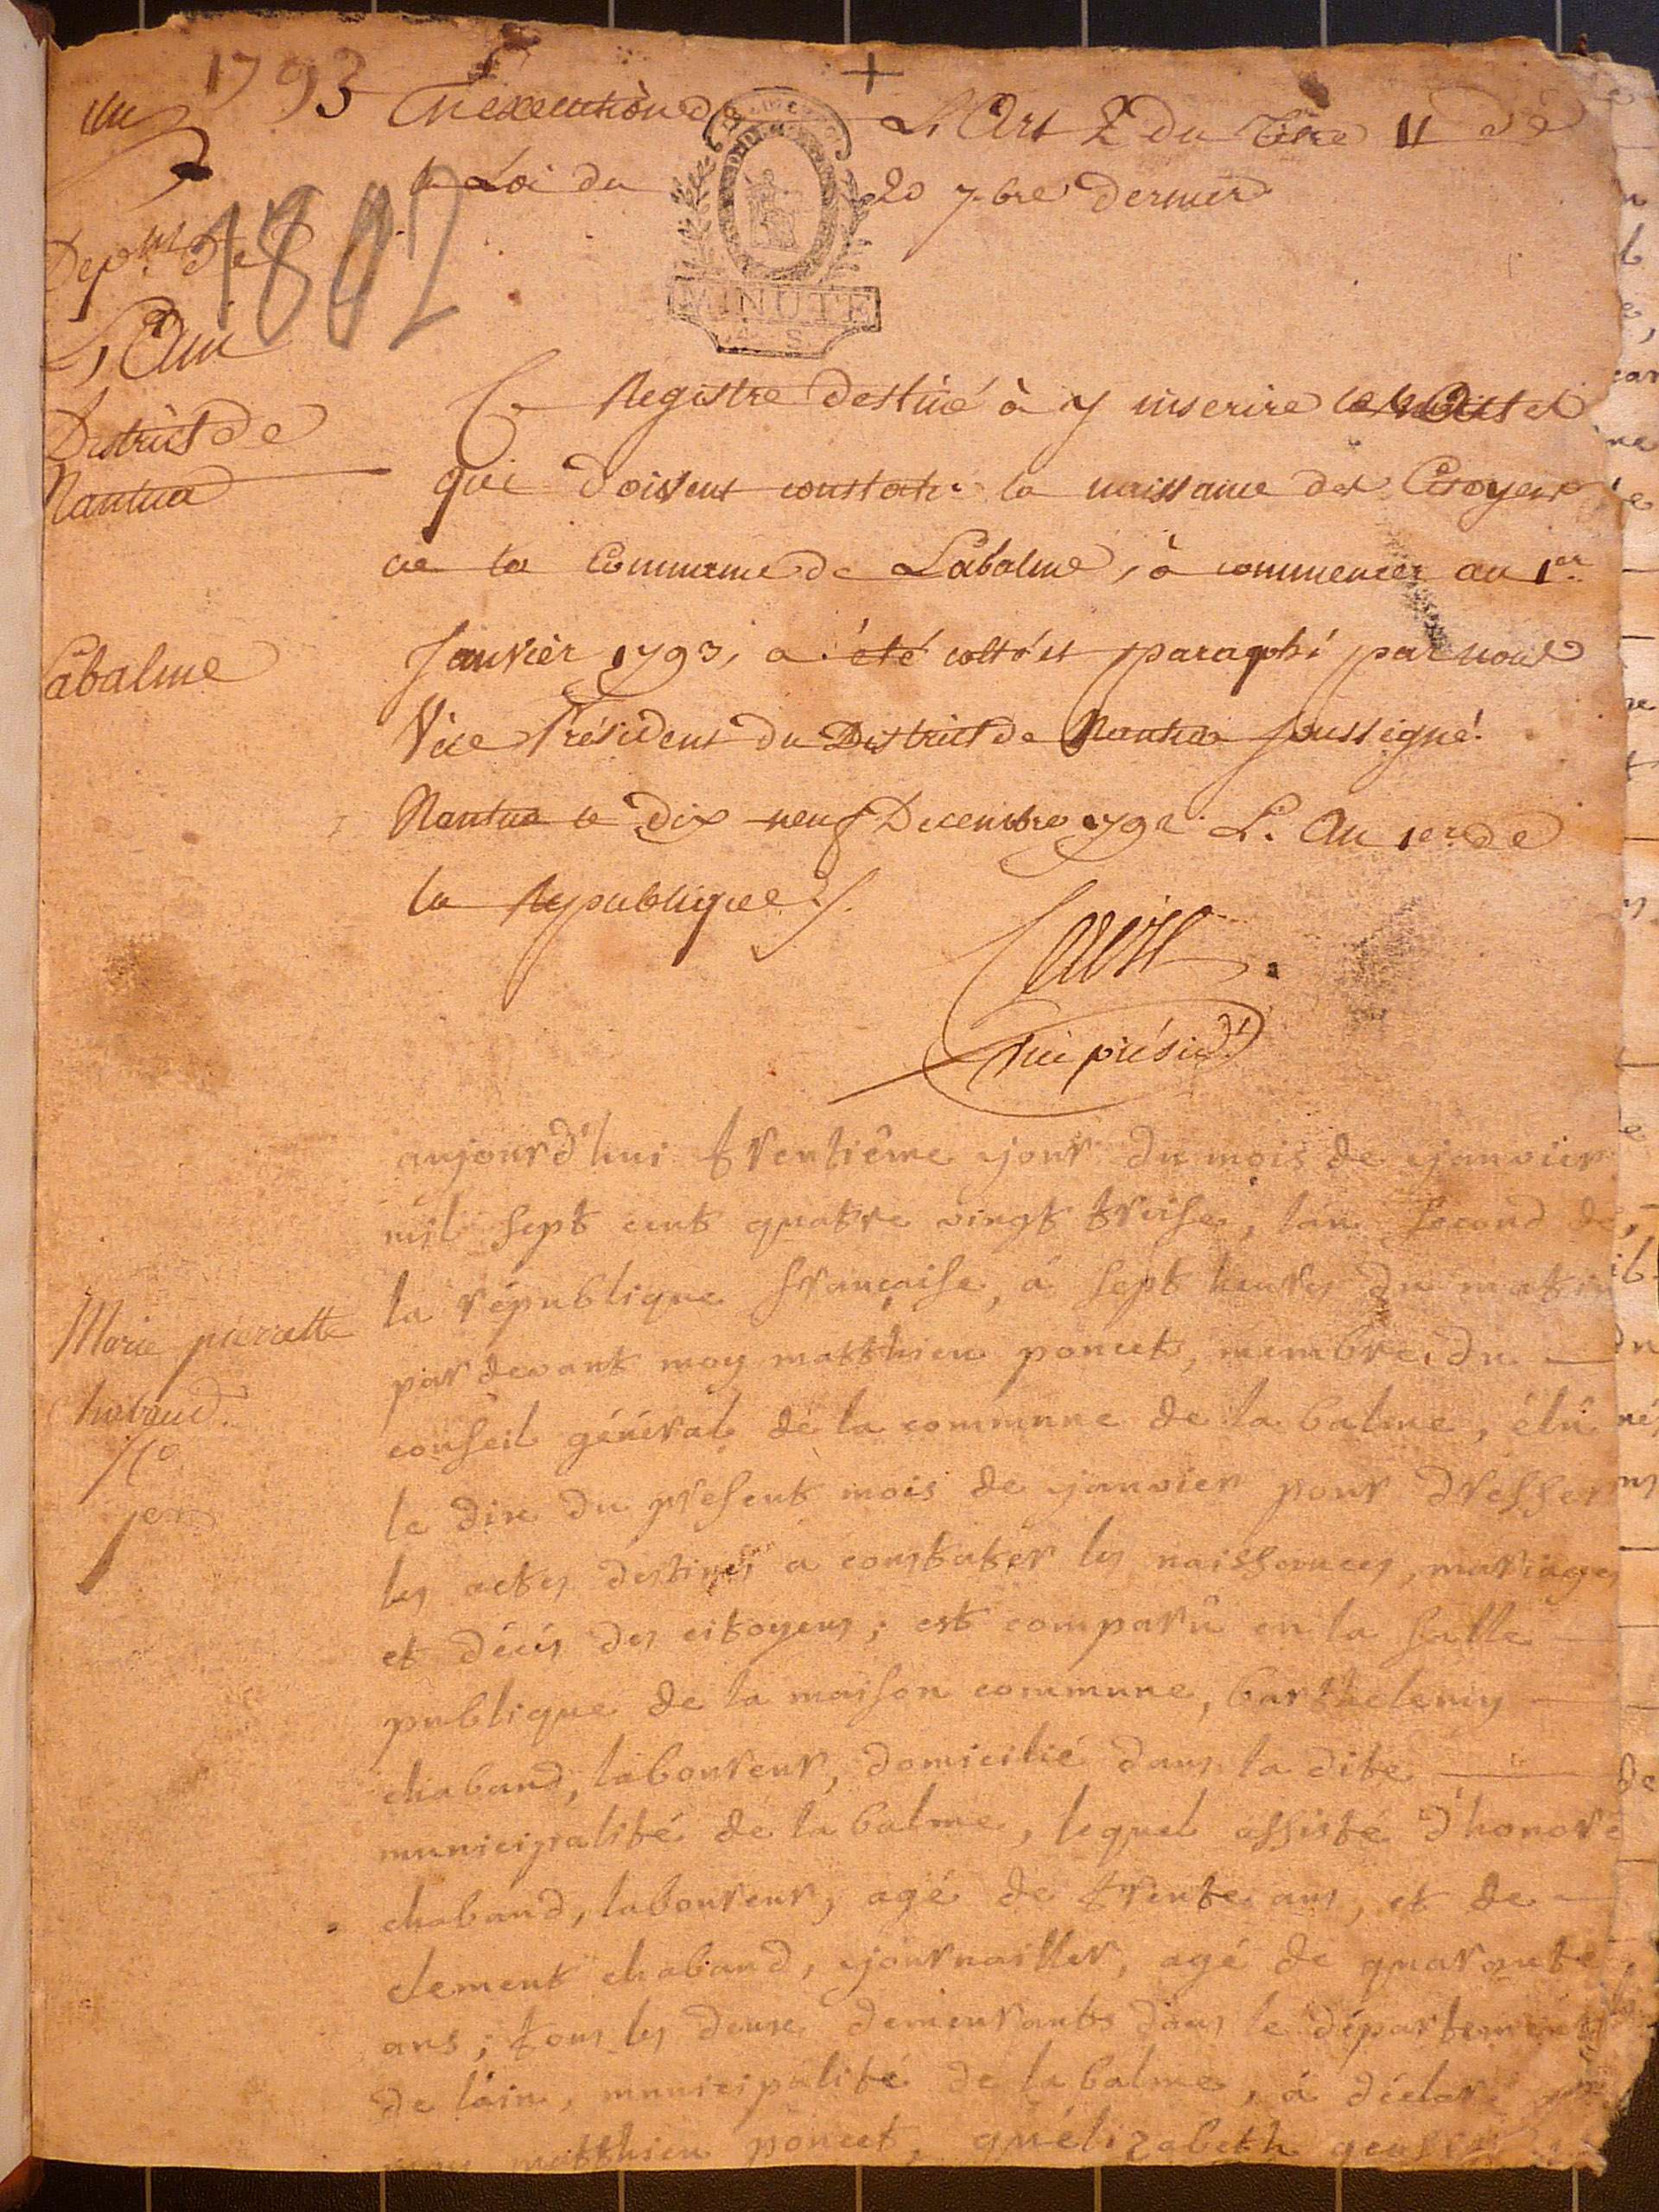 1793
un
En execution de L'Art 2 du Titre II de
la Loi du 20 7.bre dernier
MINUTE
1802
Dep.nt de
L'Ain
District de
Nantua
Labalme
Ce Registre destiné à y inscrire les actes
qui doivent constater la naissance des Citoyens
de la Commune de Labalme, à commencer au 1er
Janvier 1793, a été cotté et paraphé par nous
Vice Président du District de Nantua soussigné.
Nantua le dix neuf Decembre 1792 L. An 1er de
la Republique ./.
vice présid.t
aujourd'hui trentième jour du mois de janvier
mil sept cent quatre vingt treise, l'an second de
la république française, á sept heures du matin
par devant moy matthieu poncet, membre du
conseil général de la commune de la balme, élû
le dix du present mois de janvier pour dresser
les actes destinés a constater les naissances, mariages
et décés des citoyens; est comparû en la salle
publique de la maison commune, barthelemy
chabaud, laboureur, domicilié dans la dite
municipalité de la balme, lequel assisté d'honoré
chabaud, laboureur, agé de trente ans, et de
clement chabaud, journaillier, agé de quarante
ans; tous les deux demeurants dans le département
de láin, municipalité de la balme, á déclaré
moy matthieu poncet, qu'élizabeth
Marie pierrette
chabaud